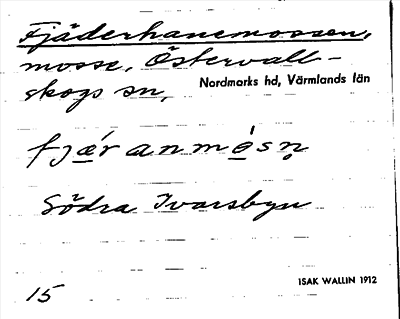 Fjäderhanemossen,
mosse, Östervall-
skogs sn, Nordmarks hd, Värmlands län
fjǽr an m ǿ s n̥
Södra Ivarsbyn
15 ISAK WALLIN 1912